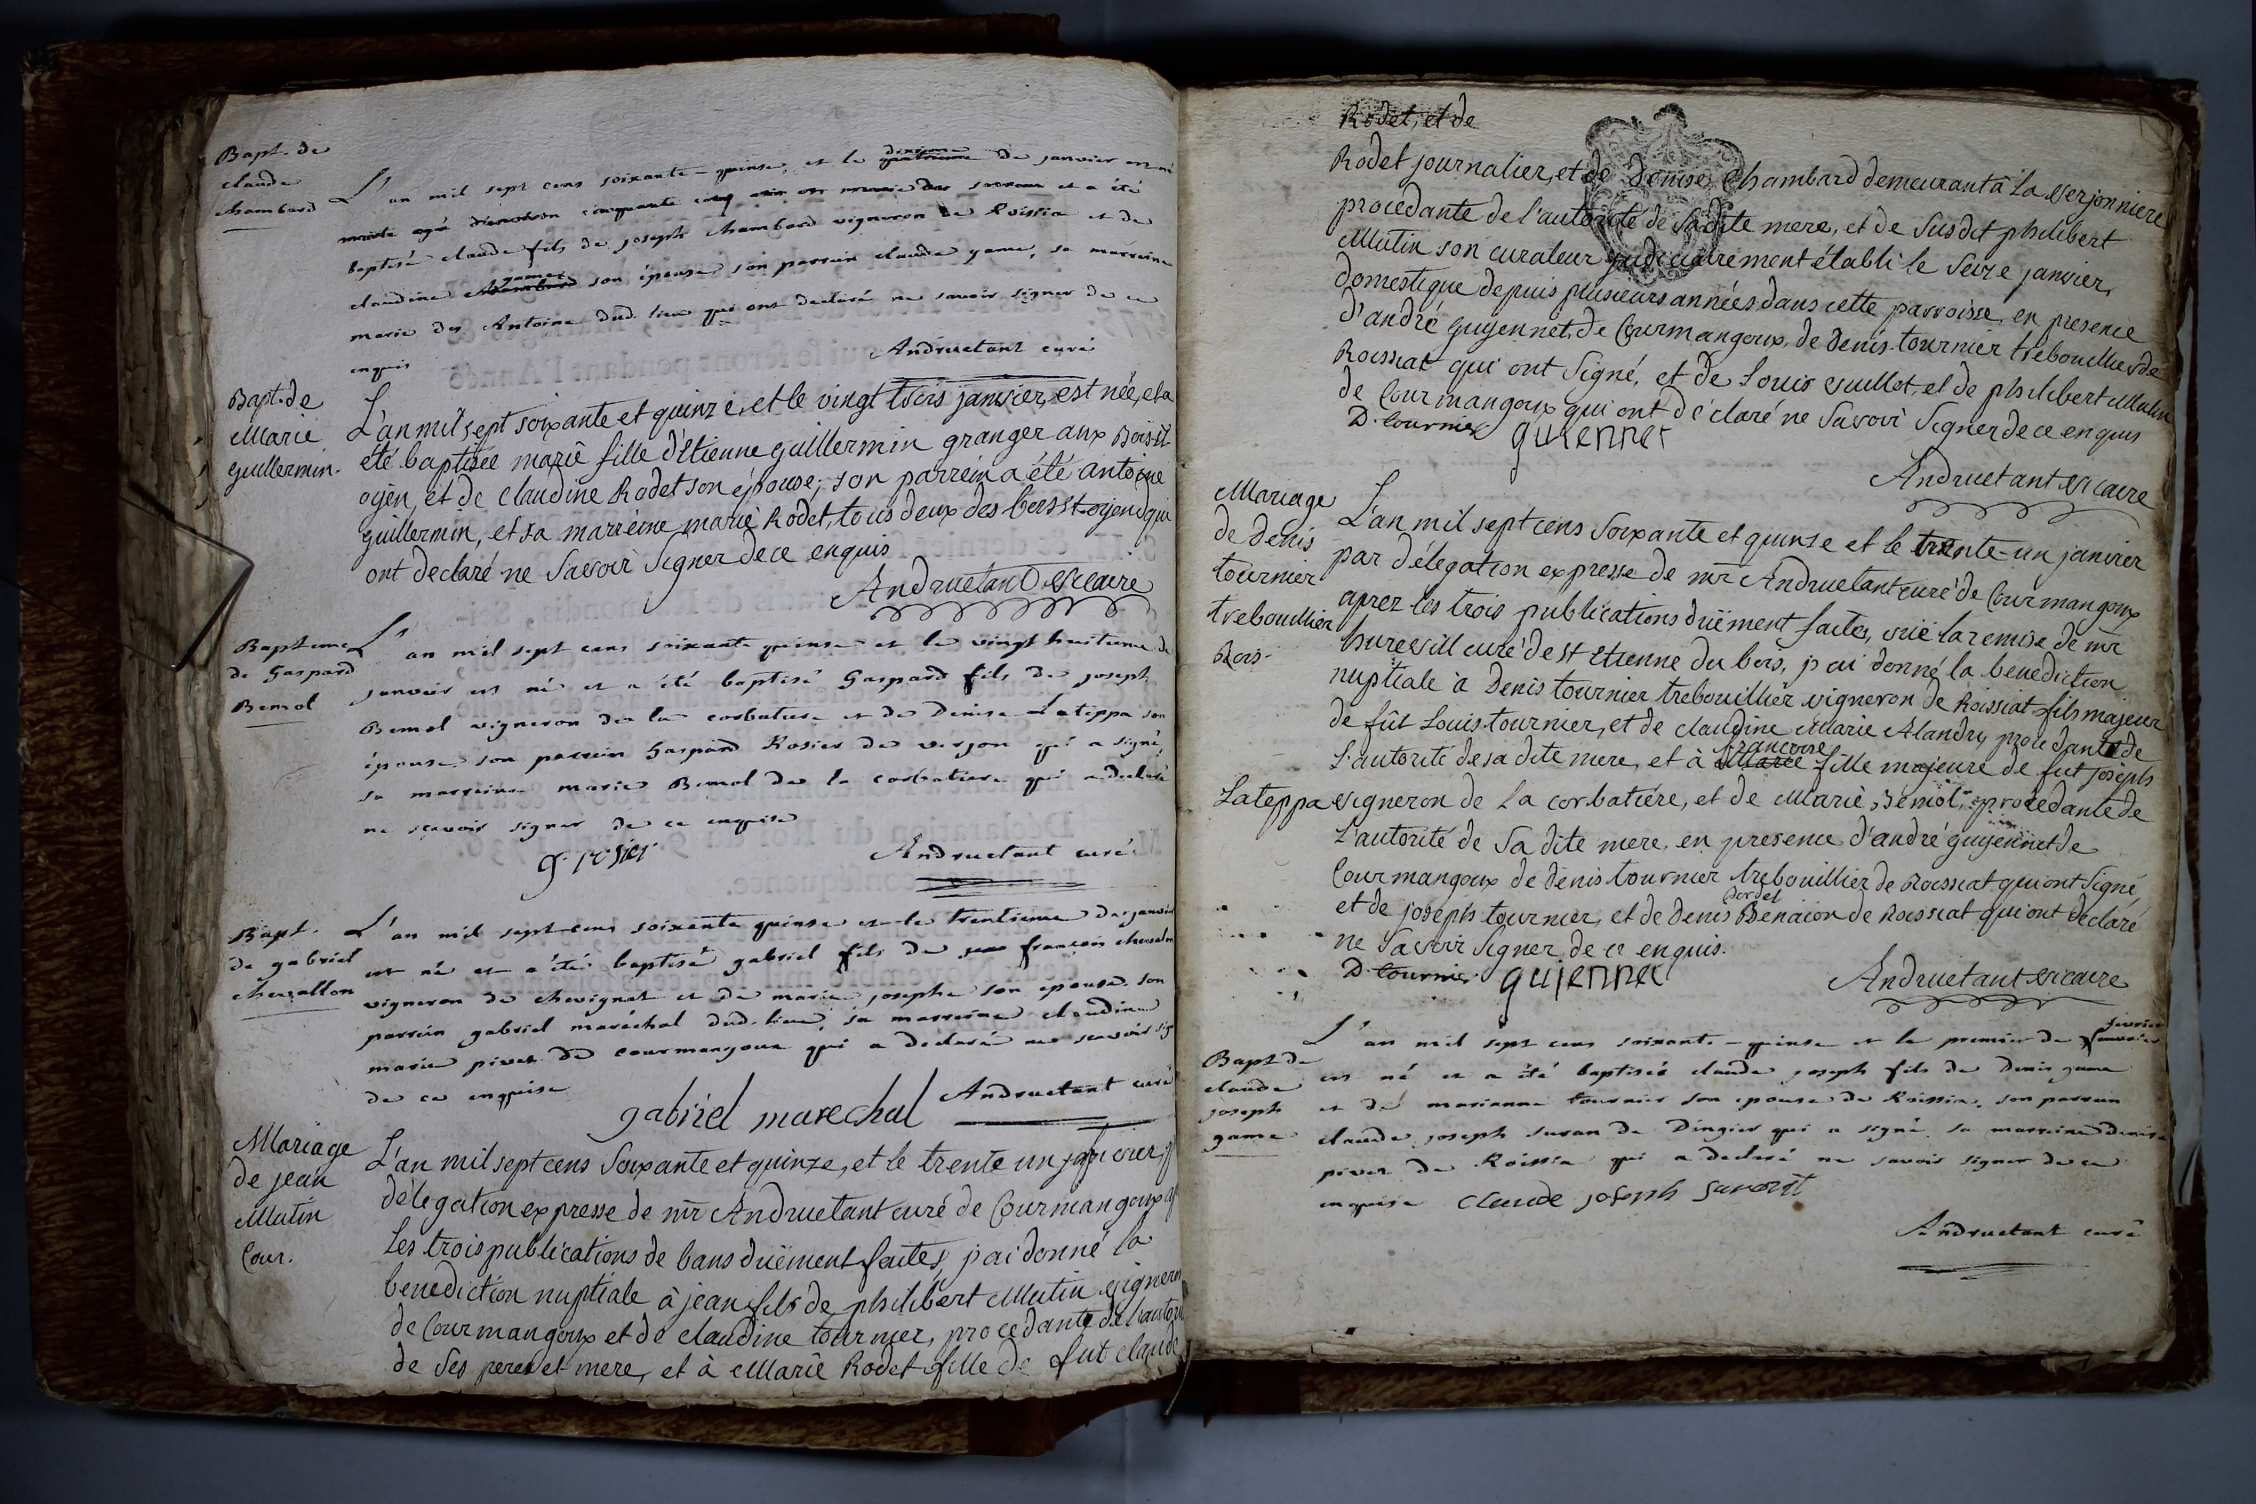 Bapt. de
claude
chambard
L'an mil sept cens soixante-quinse, et le dixieme quatrieme de janvier est né
baptisé claude fils de joseph chambard vigneron de Roissia et de
claudine game chambard son épouse son parrain claude game, sa marreine
marie des Antoine dud. lieu qui ont declaré ne savoir signer de ce
enquis
Andruetant curé
Bapt. de
Marie
guillermin.
L'an mil sept soixante et quinze, et le vingt trois janvier, est née, et a
été baptisée marie fille d'Etienne guillermin granger aux Bois st
oyen, et de claudine Rodet son épouse; son parrein a été antoine
guillermin, et sa marreine marie Rodet, tous deux des bois st oyend qui
ont declaré ne Savoir Signer de ce enquis
Andruetant Vicaire
Bapteme
de Gaspard
Bemol
L'an mil sept cens soixante quinse et le vingt huitieme de
janvier est né et a été baptisé Gaspard fils de joseph
Bemol vigneron de la corbatiere et de Denise Lateppa son
épouse son parrein Gaspard Rosier de verjon qui a signé,
sa marreine marie Bemol de la corbatiere qui a declaré
ne scavoir signer de ce enquise
g. rosier
Andruetant curé
Bapt.
de gabriel
chevallon
L'an mil sept cens soixante quinse et le trentieme de janvier
est né et a été baptisé gabriel fils de françois chevallon
vigneron de chevignat et de marie josephe son epouse son
parrein gabriel maréchal dud. lieu, sa marreine claudine
marie pivet de courmangoux qui a declaré ne scavoir sig
de ce enquise
gabriel marechal
Andruetant curé
Mariage
de jean
Mutin
Cour.
L'an mil sept cens Soixante et quinze, et le trente un janvier, p
délegation expresse de mr Andruetant curé de Courmangoux ap
Les trois publications de bans duëment faites, j'ai donné la
benediction nuptiale à jean fils de philibert Mutin vigneron
de Courmangoux et de claudine tournier, procedante de l'autori
de Ses peres et mere, et à Marie Rodet fille de fut claude
Rodet, et de
Rodet journalier, et de Denise Chambard demeurant à La Verjonniere
procedante de l'autorité de Sa dite mere, et de Susdit philibert
Mutin son curateur judiciairement établi le Seize janvier,
domestique depuis plusieurs années dans cette parroisse, en presence
d'andré guyennet, de Courmangoux, de denis tournier trebouillier de
Roissiat qui ont Signé, et de Louis vuillot, et de philibert Mutin
de Courmangoux qui ont déclaré ne Savoir Signer de ce enquis
D. tournier guienner
Andruetant Vicaire
Mariage
de denis
tournier
trebouillier
Rois.
Lateppa
L'an mil sept cens Soixante et quinse et le trente-un janvier
par délegation expresse de mr Andruetant curé de Courmangoux
aprez les trois publications duëment faites, vuë la remise de mr
curé de st etienne du bois, j'ai donné la benediction
nuptiale à Denis tournier trebouillier vigneron de Roissiat fils majeur
de fût Louis tournier, et de claudine Marie Alandry procedant de
L'autorité de sa dite mere, et à francoise Marie fille majeure de fut joseph
vigneron de La corbatiére, et de Marie Bemol, procedante de
L'autorité de Sa dite mere, en presence d'andré guyennet de
Courmangoux de denis tournier trebouillier de Roissiat qui ont Signé,
et de joseph tournier, et de denis Benaion de Roissiat qui ont declaré
ne Savoir Signer de ce enquis.
D. tournier guienner
Andruetant Vicaire
Bapt de
claude
joseph
game
L'an mil sept cens soixante-quinse et le premier de fevrier
est né et a été baptisée claude joseph fils de Denis game
et de marianne tournier son epouse de Roissia, son parrein
claude joseph suran de Dingier qui a signé sa marreine denise
pivet de Roissia qui a declaré ne savoir signer de ce
enquise claude joseph
Andruetant curé